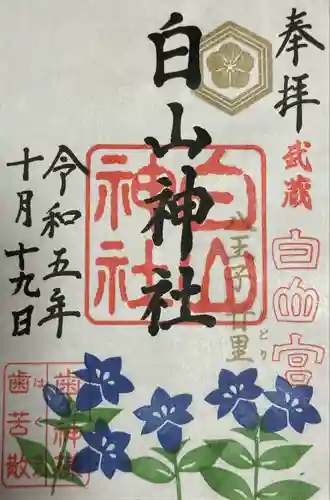 奉拝
武蔵
白山宮
八王子 廿里
とどり
白山神社
白山
神社
令和五年
十月十九日
歯神様
歯苦散